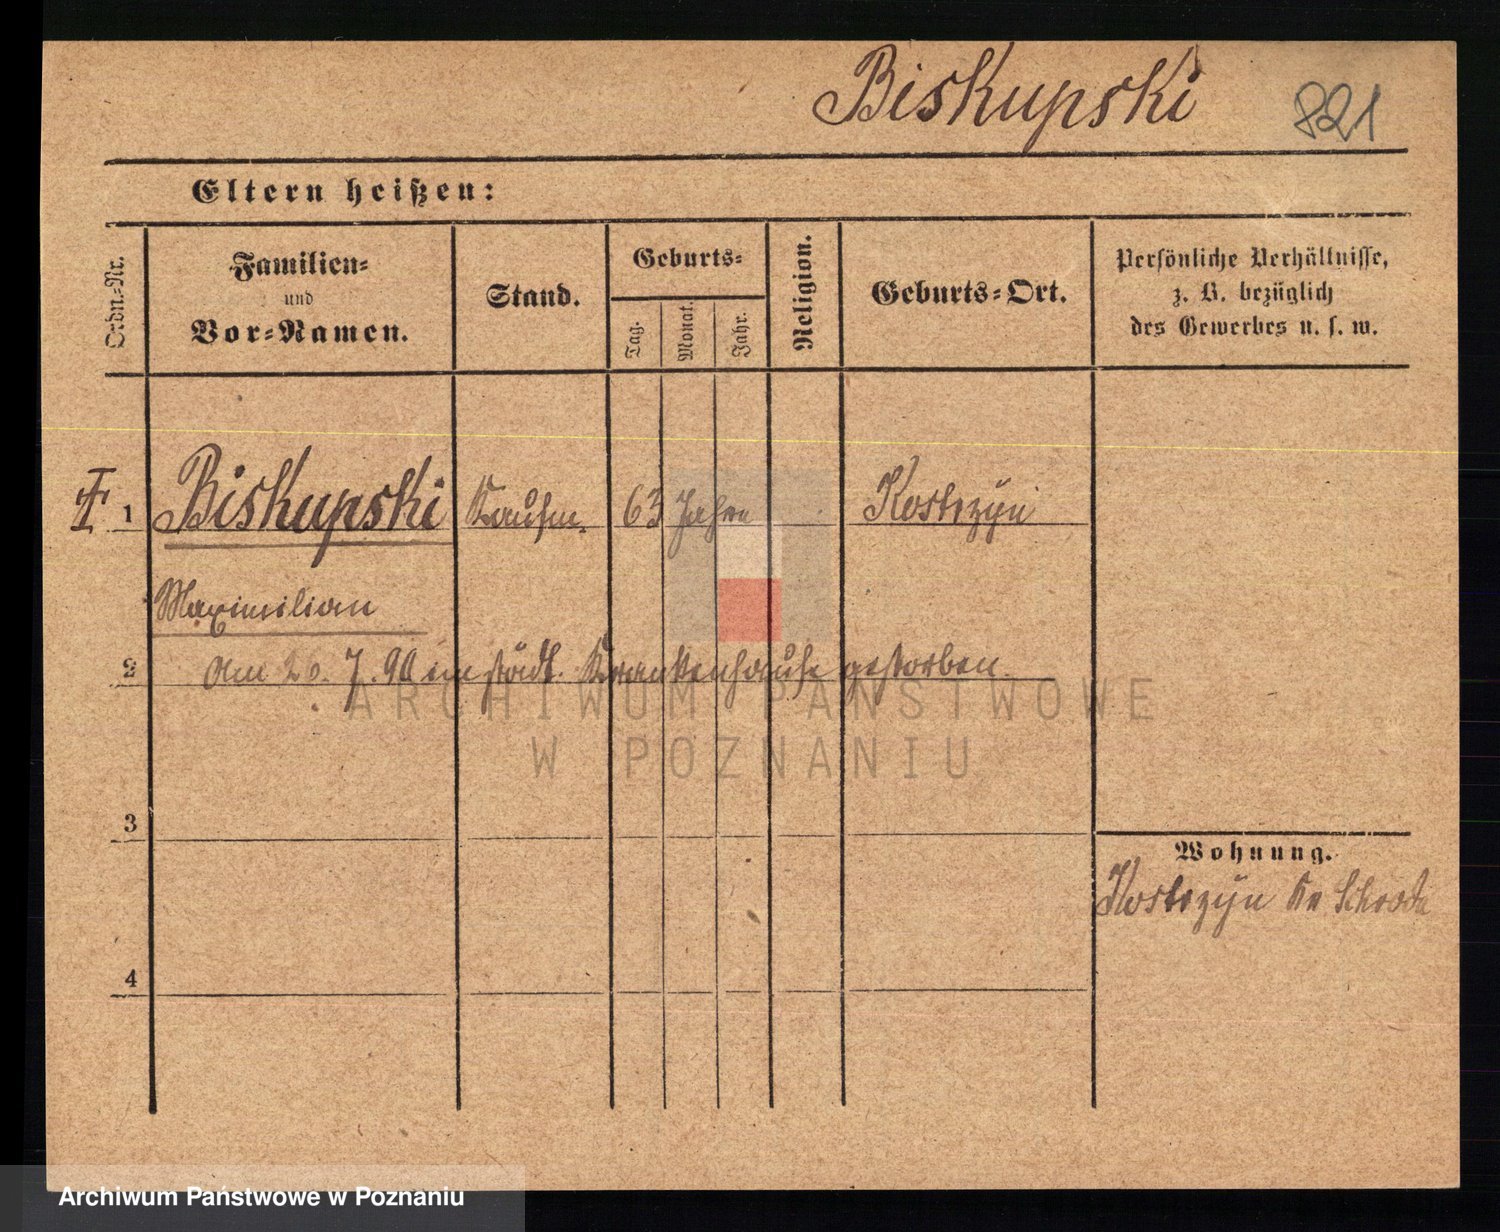 Biskupski 821
Eltern heißen:
Ordn.-Nr.
Familien-
und
Vor-Namen.
Stand.
Geburts-
Tag.
Monat.
Jahr.
Religion.
Geburts-Ort.
Persönliche Verhältnisse,
z. B. bezüglich
des Gewerbes u. s. w.
1 Biskupski Kaufm. 63 Jahre Kostrzyn
Maximilian
2 am 20. 7. 90 im städt. Krankenhause gestorben.
ARCHIWUM PAŃSTWOWE
W POZNANIU
3
Wohnung.
Kostrzyn Kr Schroda
4
Archiwum Państwowe w Poznaniu